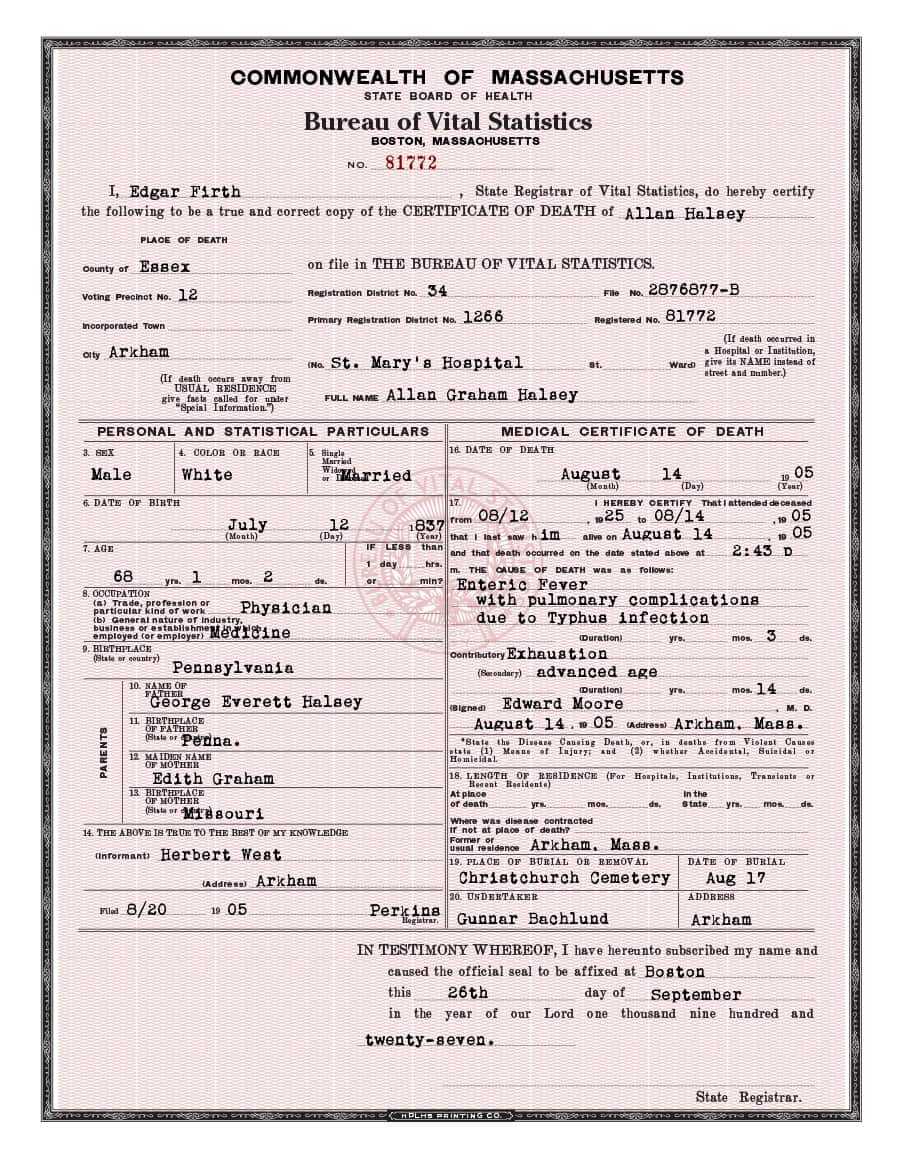 COMMONWEALTH OF MASSACHUSETTS
STATE BOARD OF HEALTH
Bureau of Vital Statistics
BOSTON, MASSACHUSETTS
NO. 81772
I, Edgar Firth, State Registrar of Vital Statistics, do hereby certify
the following to be a true and correct copy of the CERTIFICATE OF DEATH of Allan Halsey
PLACE OF DEATH
County of Essex
on file in THE BUREAU OF VITAL STATISTICS.
Voting Precinct No. 12
Registration District No. 34
File No. 2876877-B
Incorporated Town
Primary Registration District No. 1266
Registered No. 81772
City Arkham
(No. St. Mary's Hospital St. Ward)
(If death occurred in
a Hospital or Institution,
give its NAME instead of
street and number.)
(If death occurs away from
USUAL RESIDENCE
give facts called for under
"Speial Information.")
FULL NAME Allan Graham Halsey
PERSONAL AND STATISTICAL PARTICULARS
3. SEX
Male
4. COLOR OR RACE
White
5. Single
Married
Widowed
or
Married
6. DATE OF BIRTH
July 12 1837
(Month) (Day) (Year)
7. AGE
68 yrs. 1 mos. 2 ds.
IF LESS than
1 day hrs.
or min?
8. OCCUPATION
(a) Trade, profession or
particular kind of work Physician
(b) General nature of industry,
business or establishment in which
employed (or employer) Medicine
9. BIRTHPLACE
(State or country)
Pennsylvania
PARENTS
10. NAME OF
FATHER
George Everett Halsey
11. BIRTHPLACE
OF FATHER
(State or country)
Penna.
12. MAIDEN NAME
OF MOTHER
Edith Graham
13. BIRTHPLACE
OF MOTHER
(State or country)
Missouri
14. THE ABOVE IS TRUE TO THE BEST OF MY KNOWLEDGE
(Informant) Herbert West
(Address) Arkham
Filed 8/20 19 05 Perkins
Registrar.
MEDICAL CERTIFICATE OF DEATH
16. DATE OF DEATH
August 14 19 05
(Month) (Day) (Year)
17. I HEREBY CERTIFY That i attended deceased
from 08/12, 19 25 to 08/14, 19 05
that I last saw h im alive on August 14, 19 05
and that death occurred on the date stated above at 2:43 p
m. THE CAUSE OF DEATH was as follows:
Enteric Fever
with pulmonary complications
due to Typhus infection
(Duration) yrs. mos. 3 ds.
Contributory Exhaustion
(Secondary) advanced age
(Duration) yrs. mos. 14 ds.
(Signed) Edward Moore, M. D.
August 14, 19 05 (Address) Arkham, Mass.
*State the Disease Causing Death, or, in deaths from Violent Causes
state (1) Means of Injury; and (2) whether Accidental, Suicidal or
Homicidal.
18. LENGTH OF RESIDENCE (For Hospitals, Institutions, Transients or
Recent Residents)
At place In the
of death yrs. mos. ds. State yrs. mos. ds.
Where was disease contracted
If not at place of death?
Former or
usual residence Arkham, Mass.
19. PLACE OF BURIAL OR REMOVAL
Christchurch Cemetery
DATE OF BURIAL
Aug 17
20. UNDERTAKER
Gunnar Bachlund
ADDRESS
Arkham
IN TESTIMONY WHEREOF, I have hereunto subscribed my name and
caused the official seal to be affixed at Boston
this 26th day of September
in the year of our Lord one thousand nine hundred and
twenty-seven.
State Registrar.
HPLHS PRINTING CO.